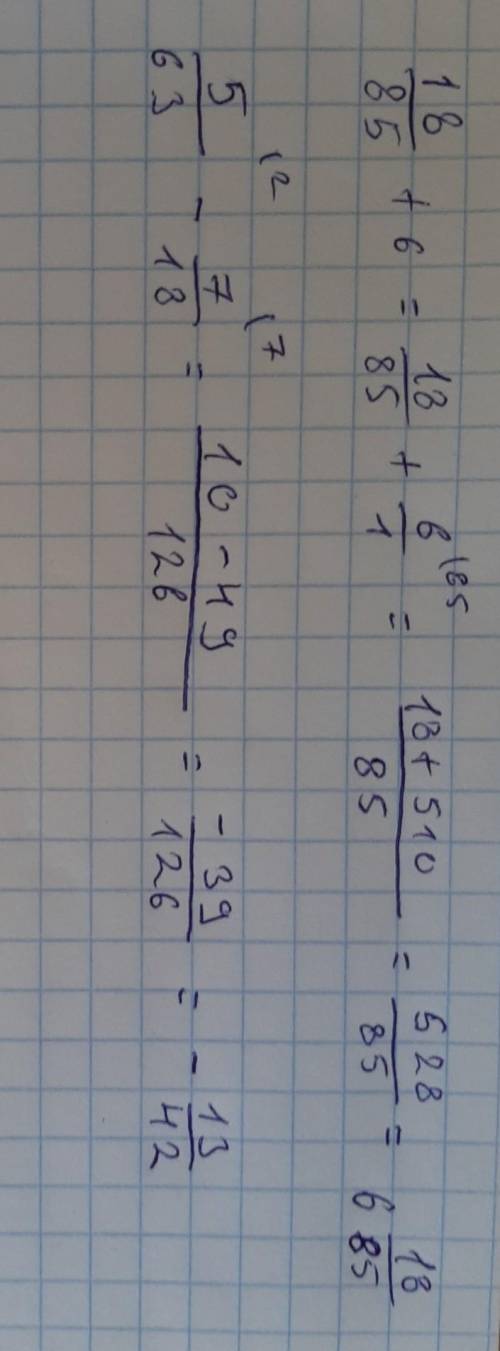 18/85 + 6 = 18/85 + 6/1 (85 = 18+510/85 = 528/85 = 6 18/85
5/63 (2 - 7/18 (7 = 10-49/126 = -39/126 = -13/42